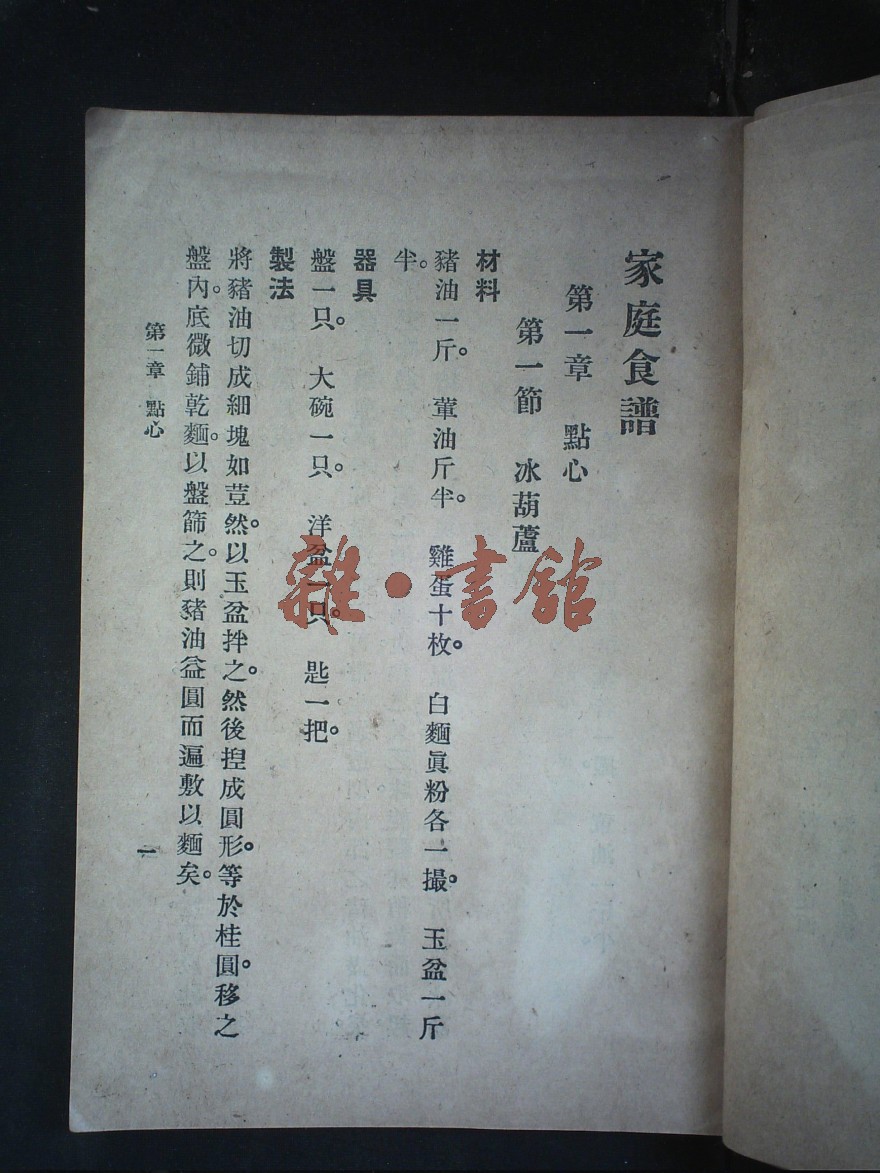 家庭食譜
第一章　點心
第一節　冰葫蘆
材料
豬油一斤。　葷油斤半。　雞蛋十枚。　白麵眞粉各一撮。　玉盆一斤
半。
器具
盤一只。　大碗一只。　洋盆一只。　匙一把。
製法
將豬油切成細塊如荳然。以玉盆拌之。然後揑成圓形。等於桂圓。移之
盤內。底微鋪乾麵。以盤篩之。則豬油益圓而遍敷以麵矣。
第一章　點心
一
雜·書館